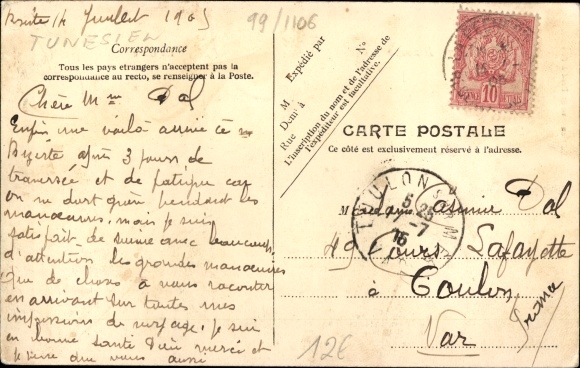 Juillet 1905
99/1106
TUNESIEN
Correspondance
Tous les pays etrangers n'acceptent pas la
correspondance au recto, se renseigner à la Poste.
Chère Mme Dol
Enfin me voilà arrivé à
Bizerte après 3 jours de
traversée et de fatigue car
on ne dort guère pendant les
manœuvres, mais je suis
satisfait de suivre avec beaucoup
d'attention les grandes manœuvres
Que de choses à vous raconter
en arrivant sur toutes mes
impressions de voyage, je suis
en bonne santé Dieu merci et
que vous aussi
N°
Expédié par
M
Demt à
Rue
L'inscription du nom et de l'adresse de
l'expéditeur est facultative.
10
CARTE POSTALE
Ce côté est exclusivement réservé à l'adresse.
TOULON S MER
VAR
Madame Dol
49 Cours Lafayette
à Toulon
Var
France
12€